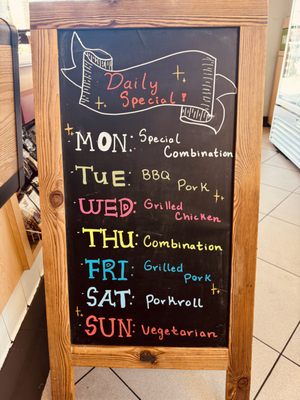 Daily
Special!
MON: Special
Combination
TUE: BBQ
Pork
WED: Grilled
Chicken
THU: Combination
FRI: Grilled
Pork
SAT: Porkroll
SUN: Vegetarian